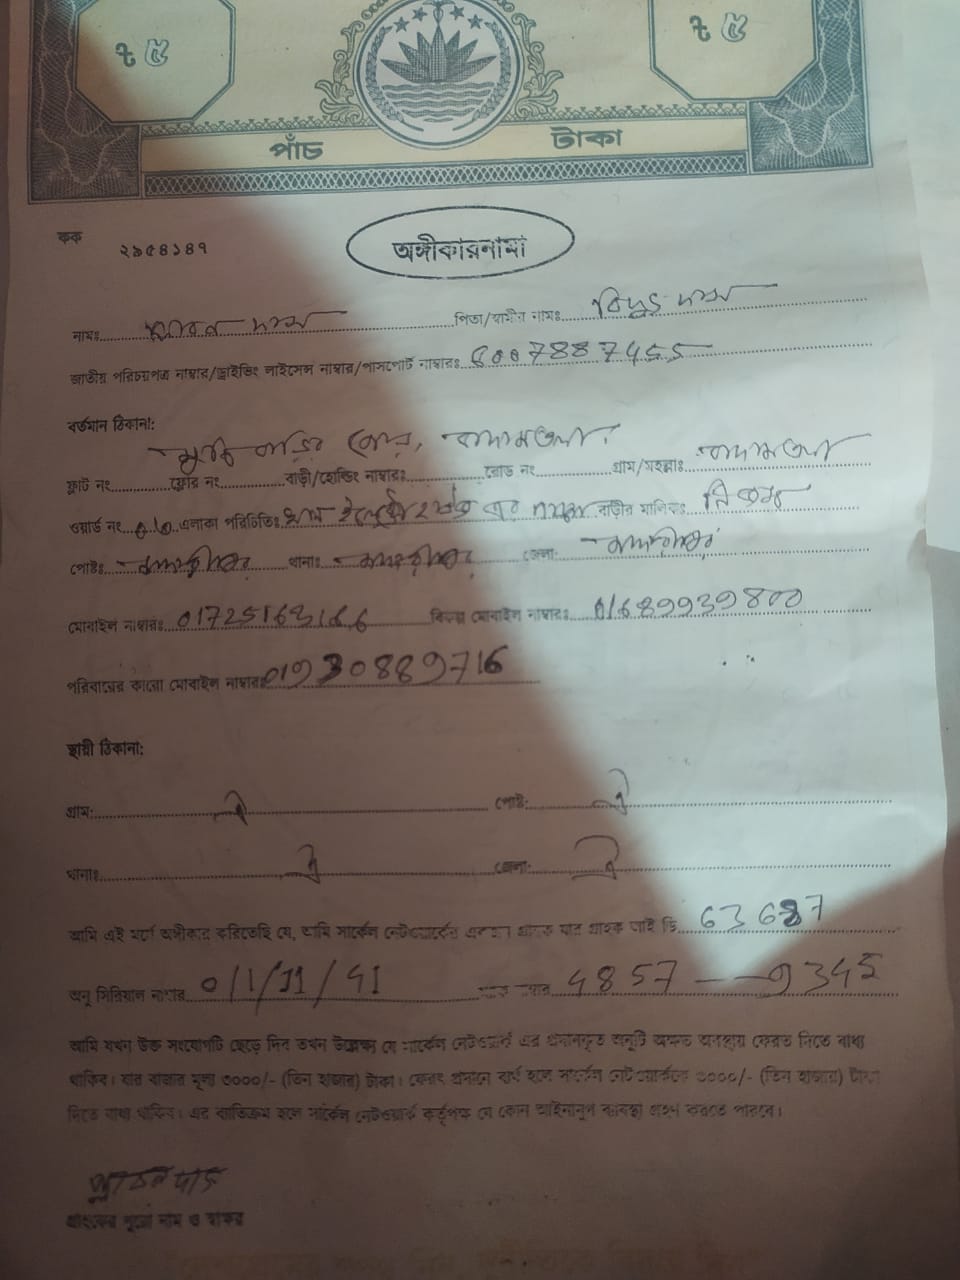 ৳ ৫ ৳ ৫
পাঁচ টাকা
কক ২৯৫৪১৪৭
অঙ্গীকারনামা
নামঃ প্লাবন দাস পিতা/স্বামীর নামঃ বিদ্যুৎ দাস
জাতীয় পরিচয়পত্র নাম্বার/ড্রাইভিং লাইসেন্স নাম্বার/পাসপোর্ট নাম্বারঃ 6007887455
বর্তমান ঠিকানা:
বাড়ির বাদামতলা
ফ্লাট নং ফ্লোর নং বাড়ী/হোল্ডিং নাম্বারঃ রোড নং গ্রাম/মহল্লাঃ বাদামতলা
ওয়ার্ড নং ০৬ এলাকা পরিচিতিঃ এর বাড়ীর মালিকঃ
পোষ্টঃ থানাঃ জেলা:
মোবাইল নাম্বারঃ 01725163166 বিকল্প মোবাইল নাম্বারঃ 01689939800
পরিবারের কারো মোবাইল নাম্বারঃ 01930889716
স্থায়ী ঠিকানা:
গ্রাম: ঐ পোষ্ট: ঐ
থানাঃ ঐ জেলা: ঐ
আমি এই মর্মে অঙ্গীকার করিতেছি যে, আমি সার্কেল নেটওয়ার্কের একজন গ্রাহক যার গ্রাহক আই ডি 63687
অনু সিরিয়াল নাম্বার 0/1/11/41 4857 9345
আমি যখন উক্ত সংযোগটি ছেড়ে দিব তখন উল্লেক্ষ্য যে সার্কেল নেটওয়ার্ক এর প্রদানকৃত অনুটি অক্ষত অবস্থায় ফেরত দিতে বাধ্য
থাকিব। যার বাজার মূল্য ৩০০০/- (তিন হাজার) টাকা। ফেরৎ প্রদানে ব্যর্থ হলে সার্কেল নেটওয়ার্ককে ৩০০০/- (তিন হাজার) টাকা
দিতে বাধ্য থাকিব। এর ব্যতিক্রম হলে সার্কেল নেটওয়ার্ক কর্তৃপক্ষ যে কোন আইনানুগ ব্যবস্থা গ্রহণ করতে পারবে।
প্লাবন দাস
গ্রাহকের পুরো নাম ও স্বাক্ষর